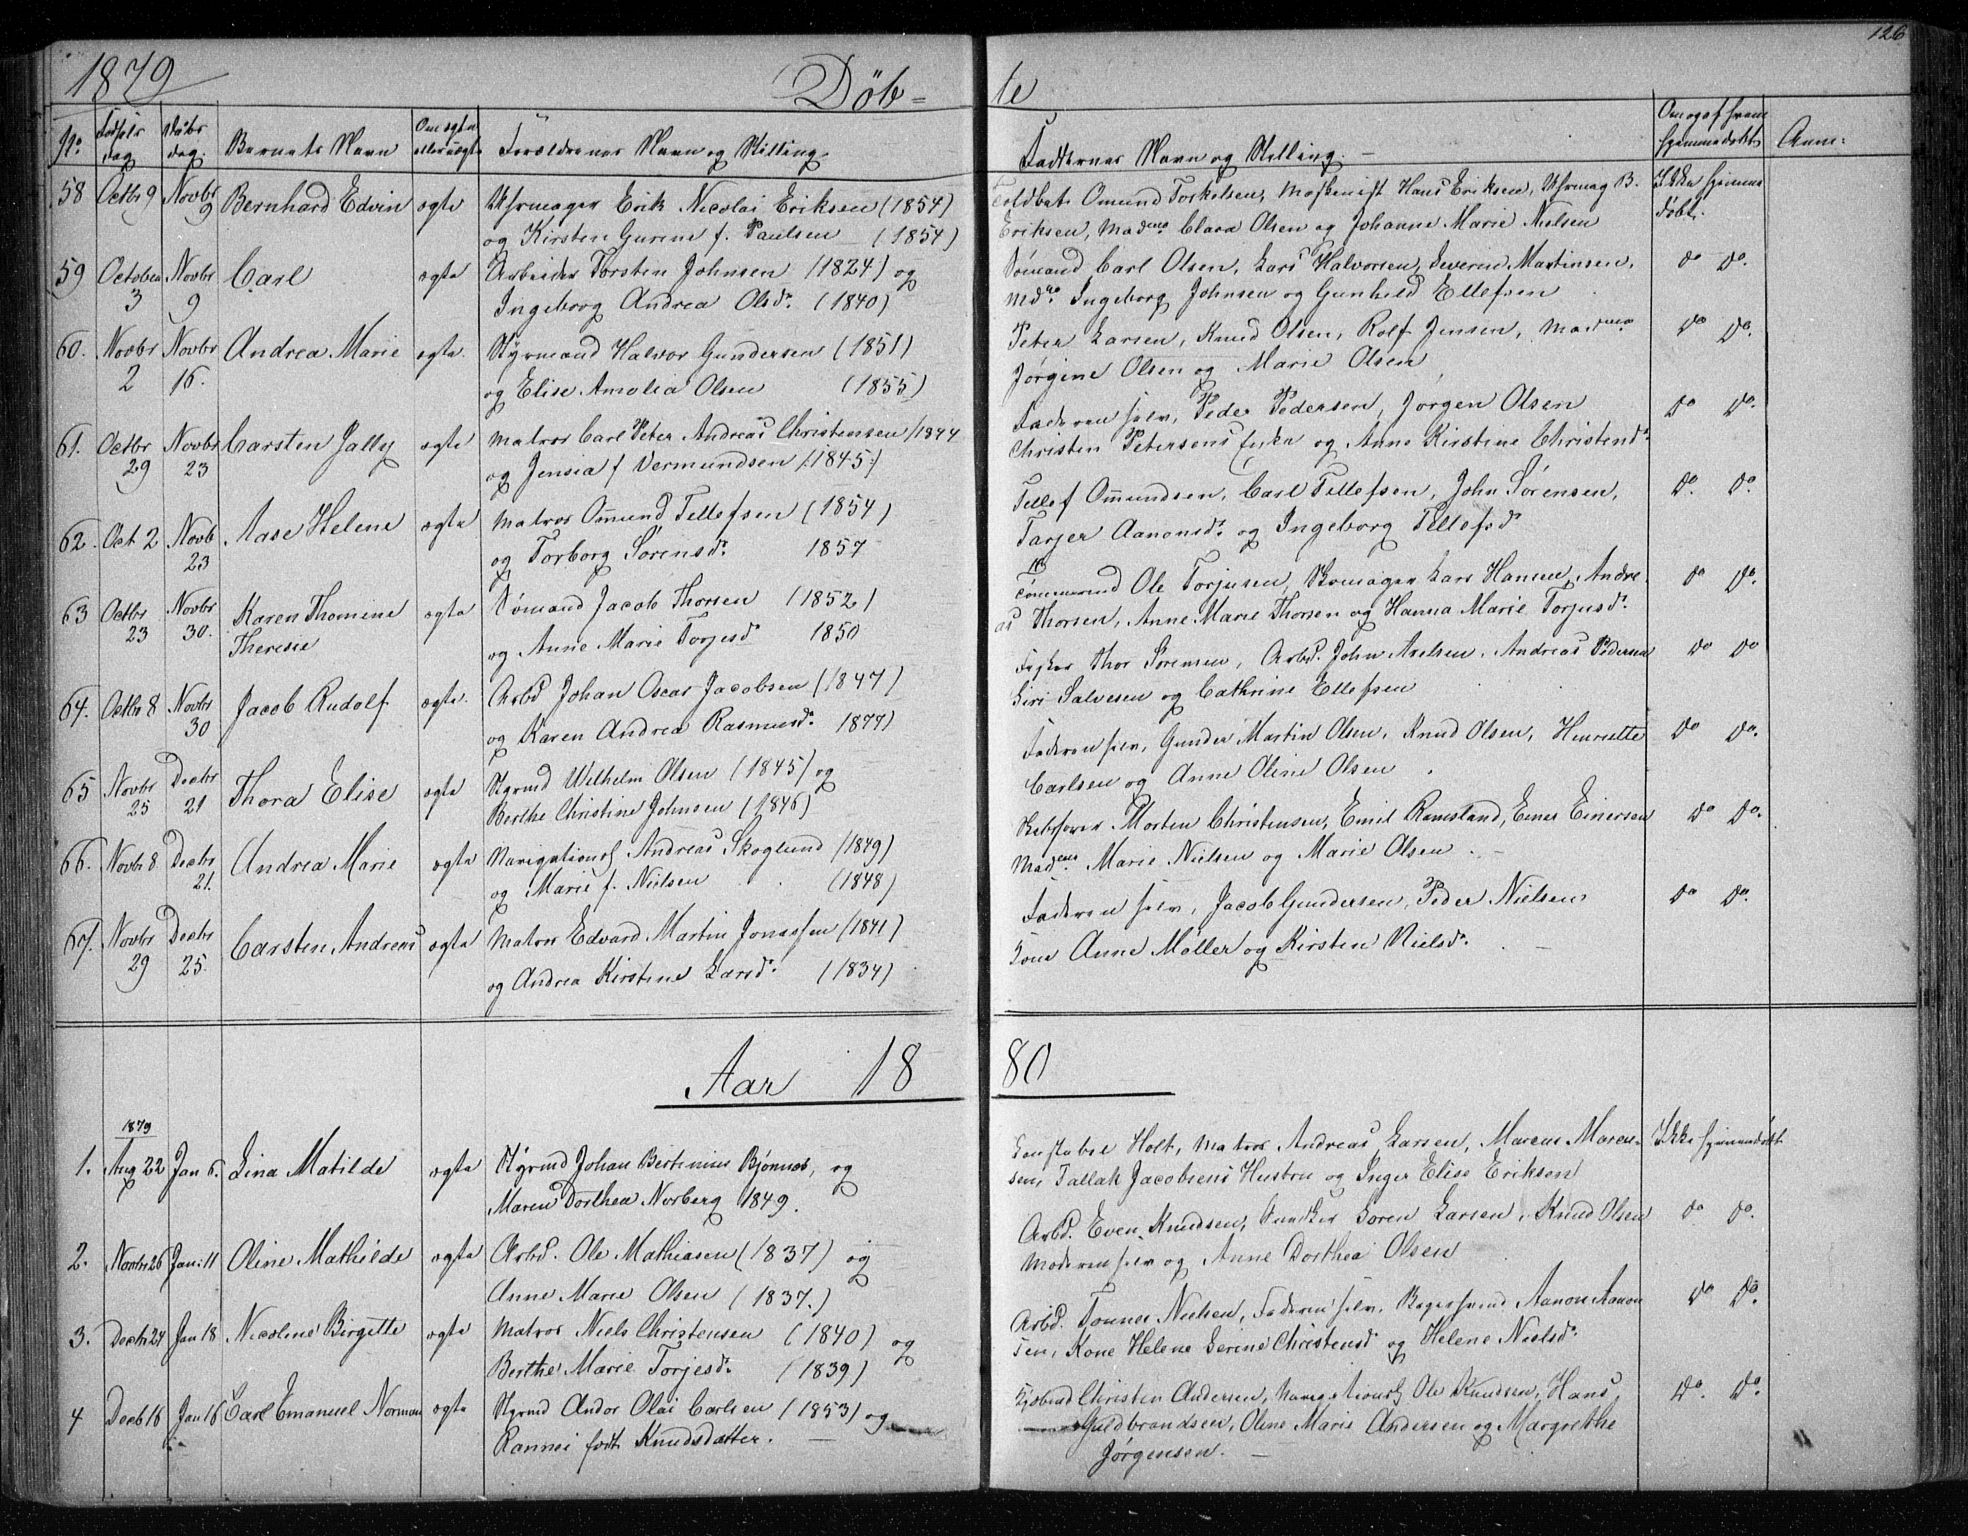 126
1879
Døb- te
No Fødsels dag Daabs dag. Barnets Navn Om ægte eller uægte Forældrenes Navn og Stilling. Faddernes Navn og Stilling. — Om og af hvem hjemmedøbt Anm:
58 Octbr 9 Novbr 9 Bernhard Edvin ægte Uhrmager Erik Nicolai Eriksen (1854)
og Kirsten Gurine f. Paulsen (1854)
Toldbet. Omund Torkelsen, Maskenist Hans Eriksen, Uhrmag B.
Eriksen, Madme Clara Olsen og Johanne Marie Nielsen
Ikke hjemme
døbt.
59 October 3 Novbr 9 Carl ægte Arbeider Torsten Johnsen (1824) og
Ingeborg Andrea Olsdr. (1840)
Sømand Carl Olsen, Lars Halvorsen, Severin Martinsen,
Mdme Ingeborg Johnsen og Gunhild Ellefsen
do do.
60. Novbr 2 Novbr 16. Andrea Marie ægte. Styrmand Halvor Gundersen (1851)
og Elise Amalia Olsen (1855)
Peter Larsen, Knud Olsen, Rolf Jensen, Madme
Jørgine Olsen og Marie Olsen
do do.
61. Octbr 29 Novbr 23 Carsten Jally ægte Matros Carl Peter Andreas Christensen (1844
og Jensia f Vermundsen (1845)
Faderen selv, Peder Pedersen, Jørgen Olsen
Christen Petersens Enke og Anne Kirstine Christensdr.
do do.
62. Oct 2 Novb 23 Aase Helene ægte Matros Omund Tellefsen (1854)
og Torborg Sørensdr. 1857
Tellef Omundsen, Carl Tellefsen, John Sørensen,
Tarjer Aanonsdr. og Ingeborg Tellefsdr
do. do.
63 Octbr 23 Novbr 30. Karen Thomine
Theresie ægte Sømand Jacob Thorsen (1852)
og Anne Marie Torjesdr 1850
Tømmermd Ole Torjusen, Skomager Lars Hansen, Andre
as Thorsen, Anne Marie Thorsen og Hanna Marie Torjusdr.
do do.
64. Octbr 8 Novbr 30 Jacob Rudolf ægte. Arbd Johan Oscar Jacobsen (1847)
og Karen Andrea Rasmusdr. 1877)
Fisker Thor Sørensen, Arbd. John Axelsen, Andreas Pedersen
Siri Salvesen og Cathrine Ellefsen
do do
65 Novbr 25 Decbr 21 Thora Elise ægte Styrmd Wilhelm Olsen (1845) og
Berthe Christine Johnsen (1846)
Faderen selv, Gunder Martin Olsen, Knud Olsen, Henriette
Carlsen og Anne Oline Olsen
do do.
66. Novbr 8 Decbr 21. Andrea Marie ægte Navigationsl Andreas Skoglund (1849)
og Marie f. Nielsen (1848)
Skibsfører Morten Christensen, Emil Ramsland, Enes Einersen
Madme. Marie Nielsen og Marie Olsen.
do do.
67. Novbr 29 Decbr 25. Carsten Andreas ægte Matros Edvard Martin Jonassen (1841)
og Andrea Kirstine Larsdr. (1834)
Faderen selv, Jacob Gundersen, Peder Nielsens
Kone Anne Møller og Kirsten Nielsdr.
do do.
Aar 1880
1879
1. Aug 22 Jan 6. Lina Matilde ægte Styrmd Johan Bertinius Bjønnes, og
Maren Dorthea Norberg 1849.
Konstabel Holt, Matros Andreas Larsen, Marcus Marcu-
sen, Tallak Jacobsens Hustru og Inger Elise Eriksen
Ikke hjemmedøbt
2. Novbr 26 Jan. 11 Oline Mathilde ægte Arbd. Ole Mathiasen (1837) og
Anne Marie Olsen (1837.)
Arbd. Even Knudsen, Søren Larsen, Knud Olsen
Moderen selv og Anne Dorthea Olsen
do do.
3. Decbr 24 Jan 18 Nicoline Birgitte ægte Matros Niels Christensen (1840) og
Berthe Marie Torjesdr. (1839)
Arbd. Tønnes Nielsen, Faderen selv, Bagersvend Aanon Aanon
sen, Kone Helene Serine Christensdr og Helene Nielsdr.
do do.
4 Decb 16 Jan 16 Carl Emanuel Norman ægte Styrmd Andor Olai Carlsen (1853) og
Rannei født Knudsdatter. —
Christen Andersen, Navigationsl Ole Knudsen, Hans
Guldbrandsen, Oline Marie Andersen og Margrethe
Jørgensen. —
do. do.